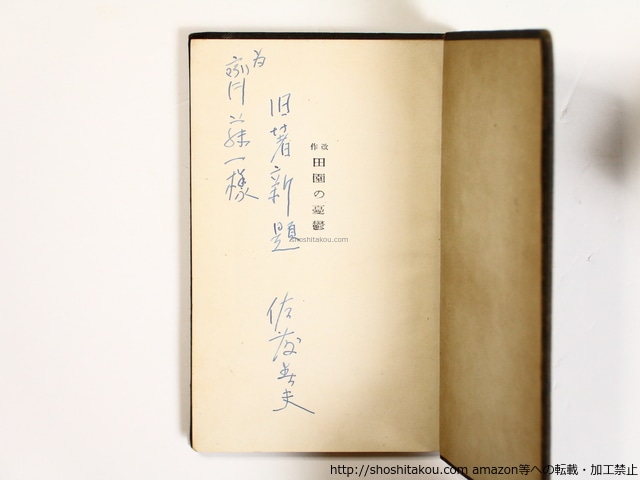 改作
田園の憂鬱
旧著新題
佐藤春夫
為
一様
shoshitakou.com
http://shoshitakou.com amazon等への転載・加工禁止